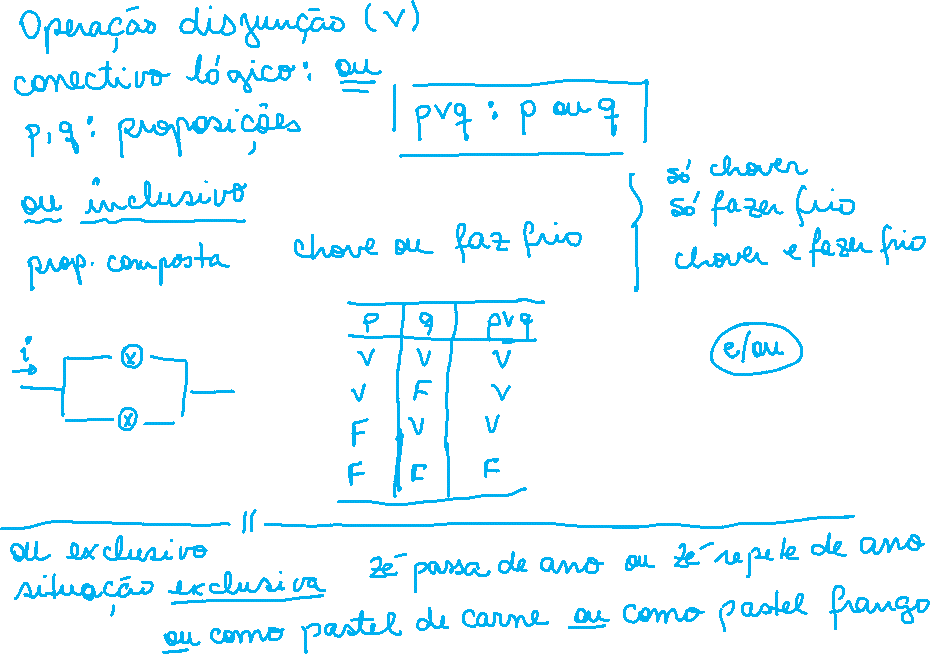 Operação disjunção (v)
conectivo lógico: ou
p, q: proposições
p v q : p ou q
ou inclusivo
prop. composta
chove ou faz frio
só chover
só fazer frio
chover e fazer frio
e/ou
i
p q p v q
V V V
V F V
F V V
F F F
ou exclusivo
situação exclusiva
zé passa de ano ou zé repete de ano
ou como pastel de carne ou como pastel frango